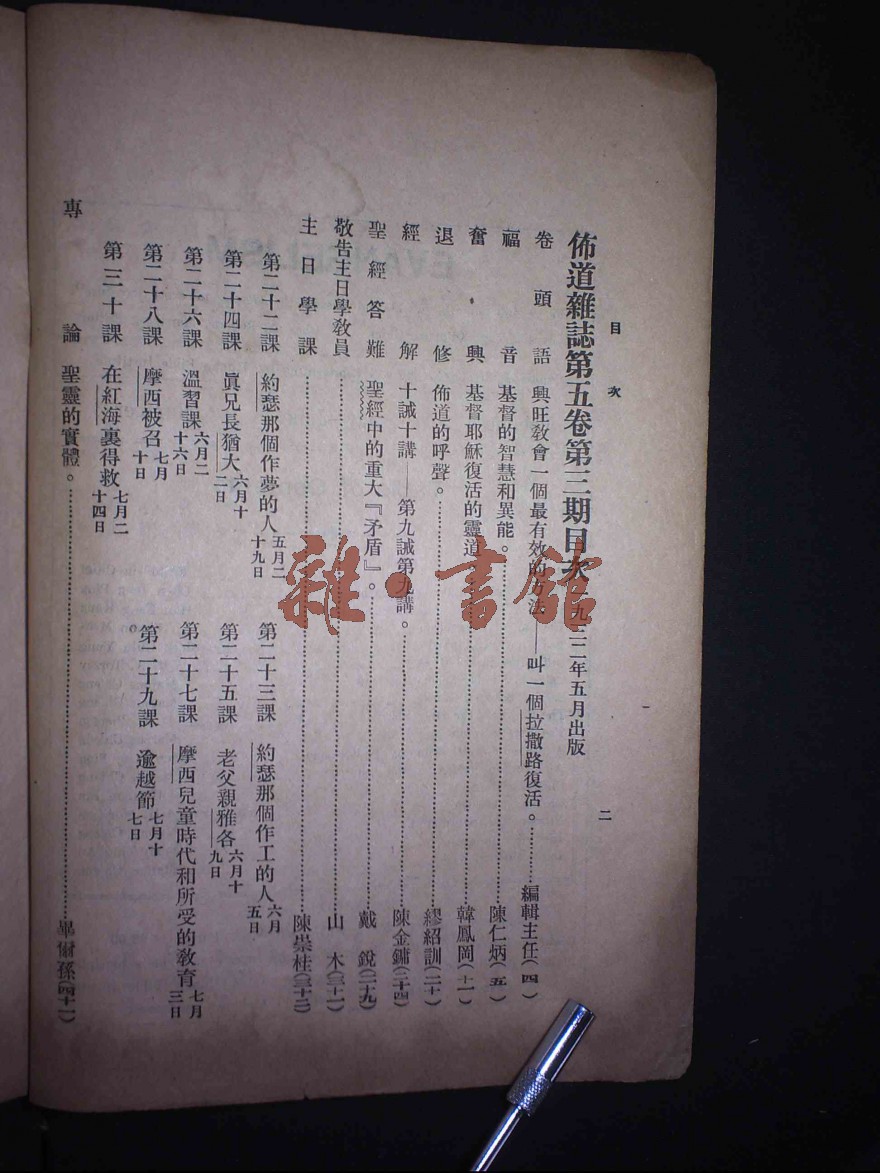 目次
二
佈道雜誌第五卷第三期目次 一九三二年五月出版
卷頭語 興旺敎會一個最有效的方法——叫一個拉撒路復活。…………編輯主任(四)
福音 基督的智慧和異能。…………陳仁炳(五)
奮興 基督耶穌復活的靈道…………韓鳳岡(十一)
退修 佈道的呼聲。…………繆紹訓(二十)
經解 十誡十講——第九誡第九講。…………陳金鏞(二十四)
聖經答難 聖經中的重大『矛盾』。…………戴銳(二十九)
敬告主日學敎員…………山木(三十一)
主日學課…………陳崇桂(三十二)
第二十二課 約瑟那個作夢的人 五月二十九日
第二十三課 約瑟那個作工的人 六月五日
第二十四課 眞兄長猶大 六月十二日
第二十五課 老父親雅各 六月十九日
第二十六課 溫習課 六月二十六日
第二十七課 摩西兒童時代和所受的敎育 七月三日
第二十八課 摩西被召 七月十日
第二十九課 逾越節 七月十七日
第三十課 在紅海裏得救 七月二十四日
專論 聖靈的實體。…………畢爾孫(四十一)
雜·書館